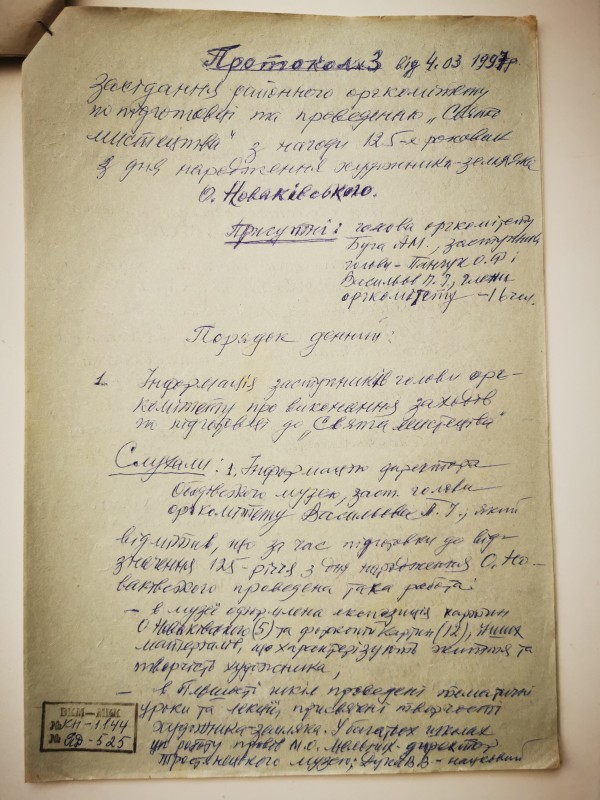 Протокол 3 від 4.03 1997р.
засідання районного оргкомітету
по підготовці та проведенню „Свята
мистецтва" з нагоди 125-х роковин
з дня народження художника-земляка
О. Новаківського.
Присутні: голова оргкомітету
Буга А.М., заступники
голови - Панчук О.Ф і
Васильов П.І, члени
оргкомітету - 16 чол.
Порядок денний:
1. Інформація заступників голови орг-
комітету про виконання заходів
по підготовці до „Свята мистецтва"
Слухали: 1. Інформацію директора
музею, заст. голови
оргкомітету Васильова П.І., який
відмітив, що за час підготовки до від-
значення 125-річчя з дня народження О. Но-
ваківського проведена така робота:
– в музеї оформлена експозиція картин
О. Новаківського (5) та фотокопій картин (12), інших
матеріалів, що характеризують життя та
творчість художника,
– в більшості шкіл проведені тематичні
уроки та лекції, присвячені творчості
художника-земляка. У багатьох школах
цю роботу провів М.О. директор
Тростянецького музею, В.В - науковий
ВКМ-МНК
№ КН-1144
№ -525